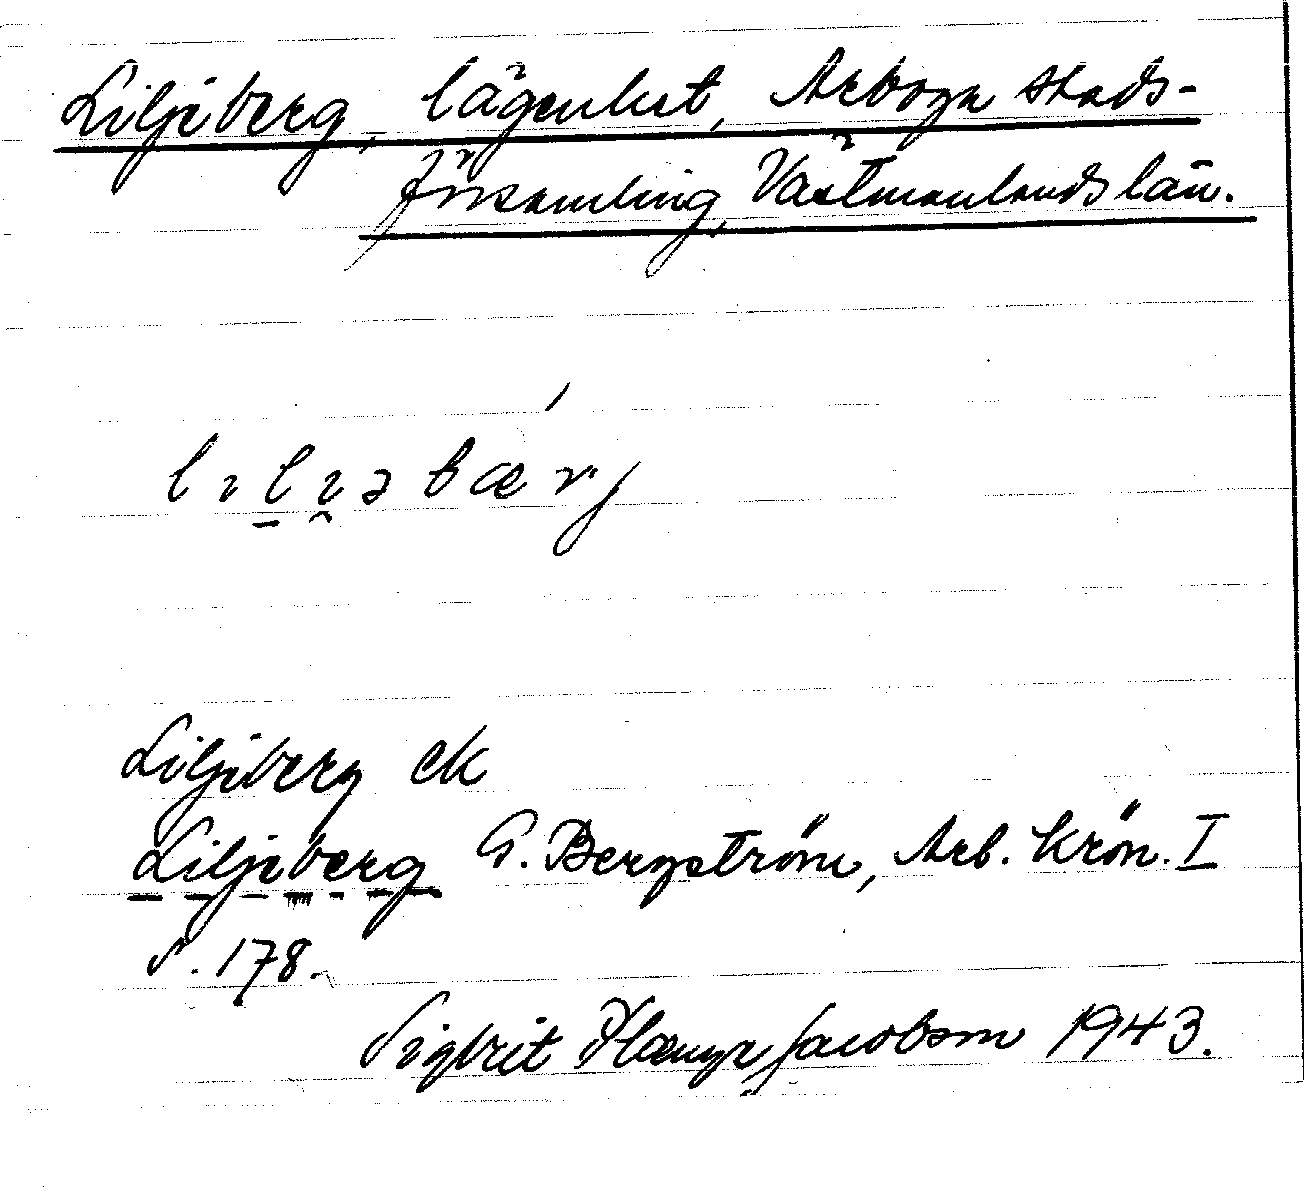 Liljeberg, lägenhet, Arboga stads-
församling, Västmanlands län.
lılı̯əbærj
Liljeberg ek
Liljeberg G. Bergström, Arb. Krön. I
s. 178.
Sigbrit Plænge Jacobson 1943.